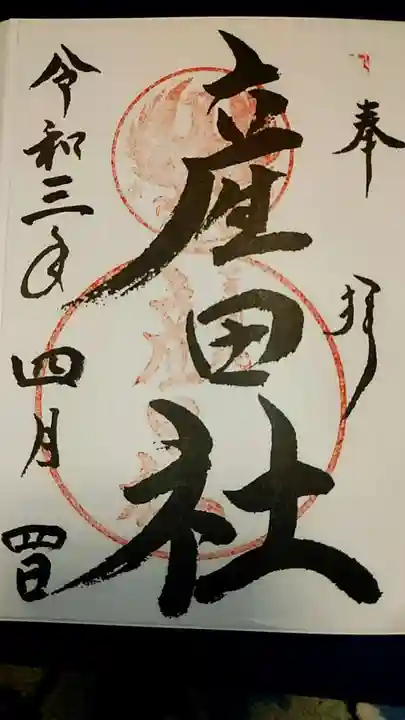 奉拝
産田社
令和三年四月四日